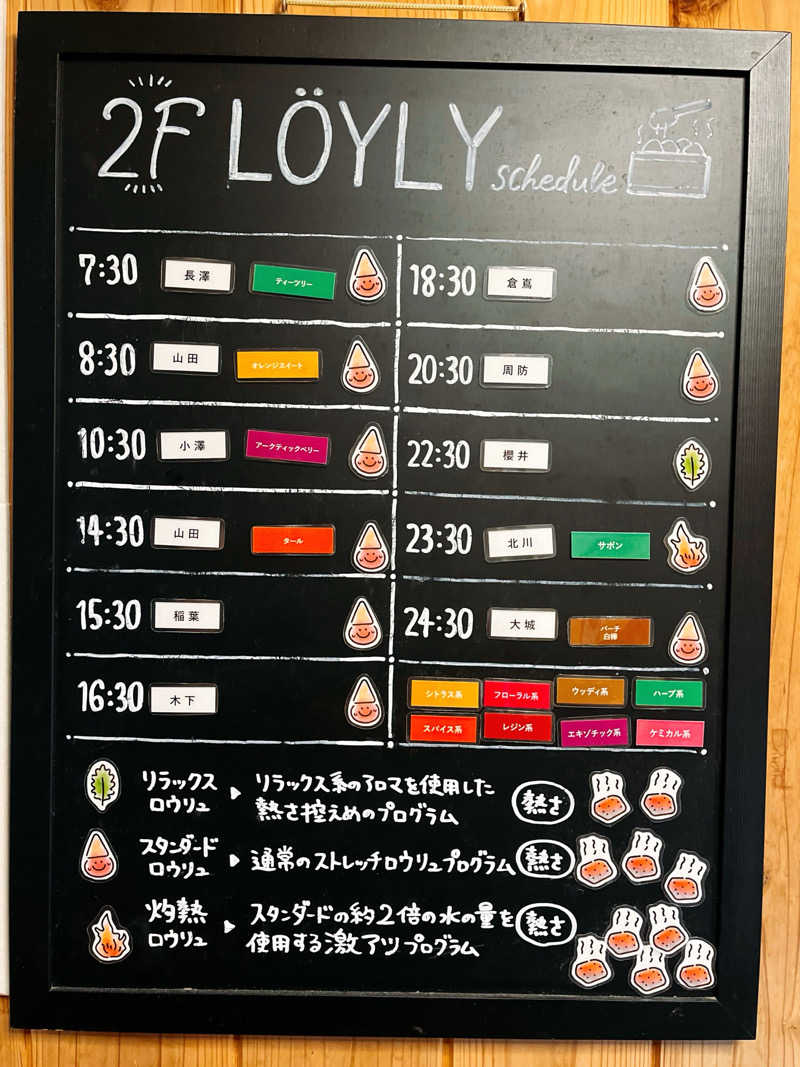 2F LÖYLY schedule
7:30 長澤 ティーツリー
8:30 山田 オレンジスイート
10:30 小澤 アークティックベリー
14:30 山田 タール
15:30 稲葉
16:30 木下
18:30 倉嶌
20:30 周防
22:30 櫻井
23:30 北川 サボン
24:30 大城 バーチ
白樺
シトラス系 フローラル系 ウッディ系 ハーブ系
スパイス系 レジン系 エキゾチック系 ケミカル系
リラックス
ロウリュ
リラックス系のアロマを使用した
熱さ控えめのプログラム
熱さ
スタンダード
ロウリュ
通常のストレッチロウリュプログラム
熱さ
灼熱
ロウリュ
スタンダードの約2倍の水の量を
使用する激アツプログラム
熱さ